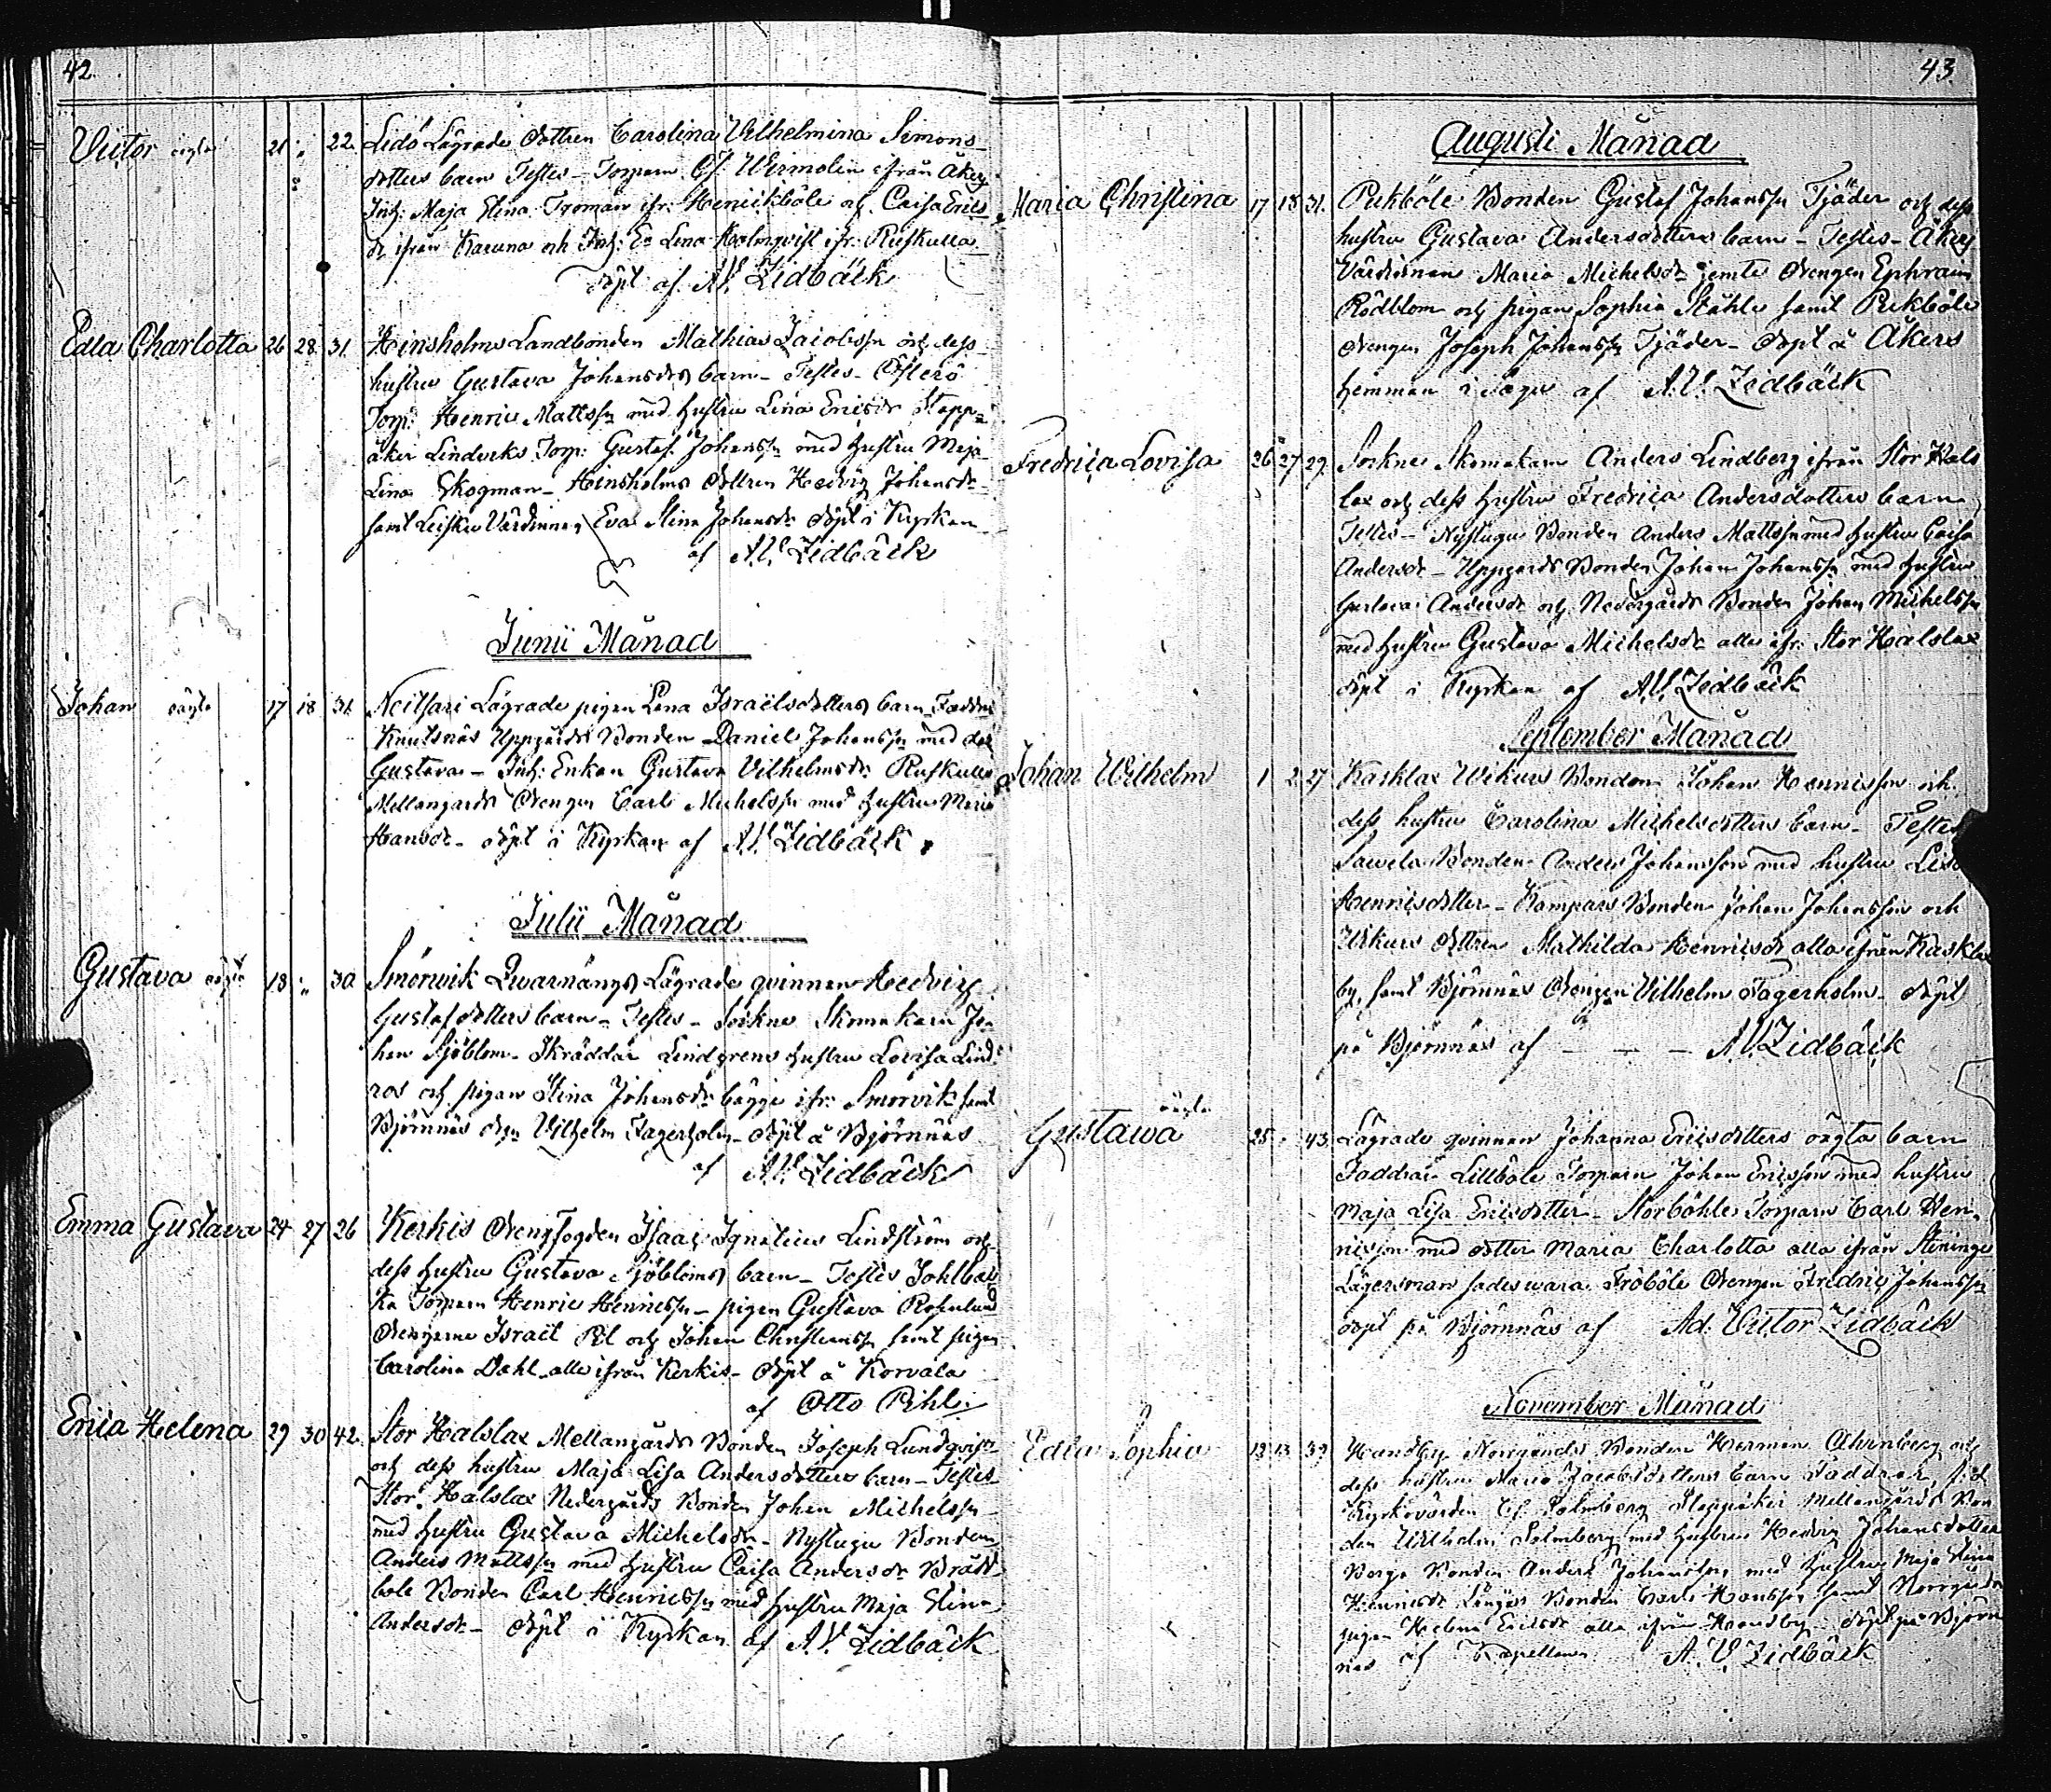 42.
Victor oägta 21 " 22. Lidö Lägrade dottren Carolina Vilhelmina Simons
dotters barn Testes - Torparn Cf. Wirmolin ifrån Åkers
Inh: Maja Stina Froman ifr: Henrickböle af Caisa Erics
dr ifrån Karuna och Inh: Eva Lena Holmqvist ifr: Ruskulla
döpt af A.V. Zidbäck
Edla Charlotta 26 28 31. Hinsholms Landbonden Mathias Jacobssn och dess
hustru Gustava Johansdrs barn - Testes - Österö
Torp: Henric Mattssn med hustru Lina Ericsdr Stapp=
åker Lindviks Torp: Gustaf Johanssn med hustru Maja
Lina Skogman - Hinsholms dottren Hedvig Johansdr
samt Leisku Värdinnan Eva Stina Johansdr döpt i Kyrkan
af A.V. Zidbäck
Junii Månad
Johan oägta 17 18 31. Neitsari Lägrade pigan Lena Israëlsdotters barn Faddrar
Knutsnäs Uppgårds Bonden Daniel Johanssn med dot
Gustava - Inh: Enkan Gustava Vilhelmsdr Ruskulla
Mellangårds Drengen Carl Michelssn med hustru Maria
Hansdr - döpt i Kyrkan af A.V. Zidbäck.
Julii Månad
Gustava oägta 18 " 30 Smörvik Qvarnängs Lägrade qvinnan Hedvig
Gustafsdotters barn - Testes - Sockne Skomakarn Jo=
han Sjöblom - Skräddar Lindgrens hustru Lovisa Lind
ros och pigan Stina Johansdr bägge ifr: Smörvik samt
Björnnäs drgn Vilhelm Fagerholm - döpt å Björnnäs
af A.V. Zidbäck
Emma Gustava 24 27 26 Kerkis Drengfogden Isaac Ignatius Lindström och
dess hustru Gustava Sjöbloms barn - Testes Johlbac
ka Torparn Henric Henricssn - pigan Gustava Rosenlund
Drengarne Israël Pil och Johan Christiansn samt pigan
Carolina Dahl alla ifrån Kerkis - döpt å Korvala
af Otto Pihl.
Erica Helena 29 30 42. Stor Halslax Mellangårds Bonden Joseph Lundqvist
och dess hustru Maja Lisa Andersdotters barn - Testes
Stor Halslax Nedergårds Bonden Johan Michelssn
med hustru Gustava Michelsdr - Nystugu Bonden
Anders Mattssn med hustru Caisa Andersdr Bräd
bole Bonden Carl Henricssn med hustru Maja Stina
Andersdr - döpt i Kyrkan af A.V. Zidbäck
43
Augusti Månad
Maria Christina 17 18 31. Pukböle Bonden Gustaf Johanssn Tjäder och dess
hustru Gustava Andersdotters barn - Testes - Åkers
Värdinnan Maria Michelsdr jemte drengen Ephraim
Rödblom och pigan Sophia Ståhle samt Pukböle
drengen Joseph Johanssn Tjäder - döpt å Åkers
hemman i Sagu af A.V. Zidbäck
Fredrica Lovisa 26 27 29. Sockne Skomakarn Anders Lindberg ifrån Stor Hals
lax och dess hustru Fredrica Andersdotters barn
Testes - Nystugu Bonden Anders Mattssn med hustru Caisa
Andersdr - Uppgårds Bonden Johan Johanssn med hustru
Gustava Andersdr och Nedergårds Bonden Johan Michelssn
med hustru Gustava Michelsdr alla ifr: Stor Halslax
döpt i Kyrkan af A.V. Zidbäck
September Månad
Johan Wilhelm 1 2 27 Kasklax Wikurs Bonden Johan Henricsson och
dess hustru Carolina Michelsdotters barn - Testes
Sawela Bonden Anders Johansson med hustru Lisa
Henricsdotter - Kampars Bonden Johan Johansson och
Wikurs dottren Mathilda Henricsdr alla ifrån Kasklax
by, samt Björnnäs drengen Vilhelm Fagerholm - döpt
på Björnnäs af - - - A.V. Zidbäck
Gustawa oägta 25 " 43. Lägrade qvinnan Johanna Ericsdotters oägta barn
Faddrar Lillböle Torparn Johan Ericsson med hustru
Maja Lisa Ericsdotter - Storböhle Torparn Carl Hen=
ricsson med dotter Maria Charlotta alla ifrån Steninge
Lägersman sades wara Fröböle drengen Fredric Johanssn
döpt på Björnnäs af Ad. Victor Zidbäck
November Månad
Edla Sophia 13 13 39. Handby Norrgårds Bonden Herman Ahrnberg och
dess hustru Maria Jacobsdotters barn Faddrar
Kyrkovärden Cf. Palmberg Stappåker Mellangårds Bon
den Wilhelm Palmberg med hustru Hedvig Johansdotter
Borgs Bonden Anders Johansson med hustru Maja Stina
Henricsdr Långars Bonden Carl Hansson samt Norrgårds
pigan Helena Ericsdr alla ifrån Handby - döpt på Björn
näs af Kapellanen A.V. Zidbäck